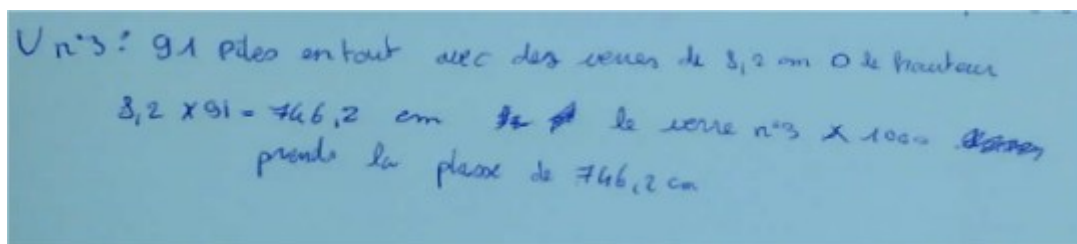 V n°3 : 91 piles en tout avec des verres de 8,2 cm O de hauteur
8,2 x 91 = 746,2 cm le verre n°3 x 1000
prends la plasse de 746,2 cm